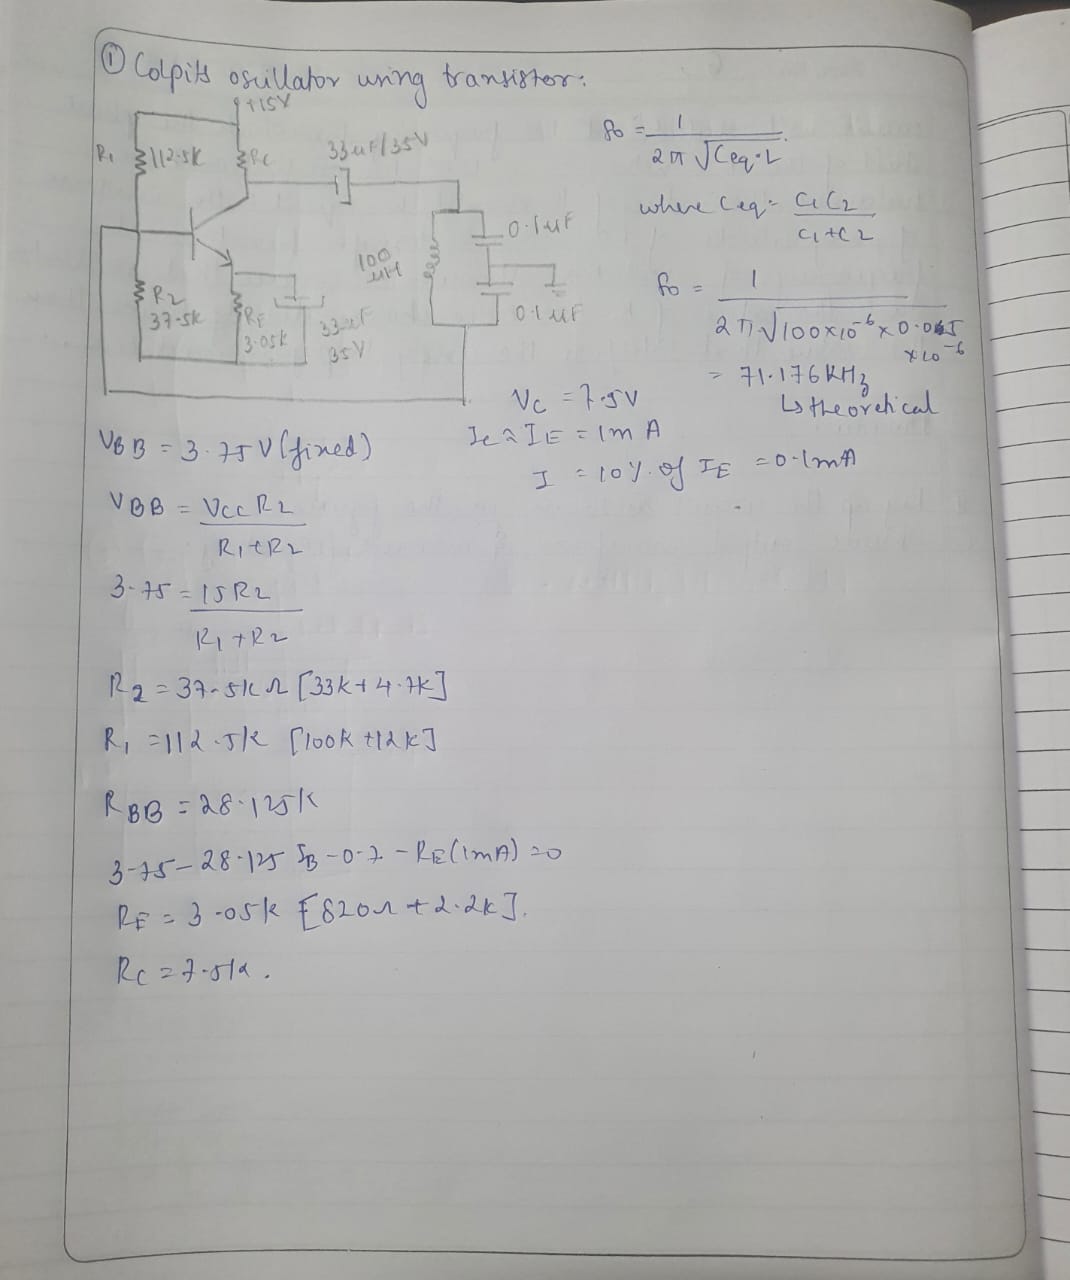 ① Colpits oscillator using transistor:
+15V
R1 112.5K
Rc
33uF/35V
0.1uF
100 uH
R2
37.5K
RE
3.05k
33uF
35V
0.1uF
fo = 1 / 2π √Ceq.L
where Ceq = C1C2 / C1+C2
fo = 1 / 2π√100x10^-6 x 0.05 x10^-6
= 71.176KHz
↳ theoretical
VC = 7.5V
Ic ≈ IE = 1mA
I = 10% of IE = 0.1mA
VBB = 3.75V (fixed)
VBB = VCC R2 / R1+R2
3.75 = 15R2 / R1+R2
R2 = 37.5kΩ [33k+4.7k]
R1 = 112.5k [100K+12K]
RBB = 28.125K
3.75-28.125 IB-0.7-RE(1mA)=0
RE = 3.05k [820Ω+2.2k].
Rc = 7.5k.